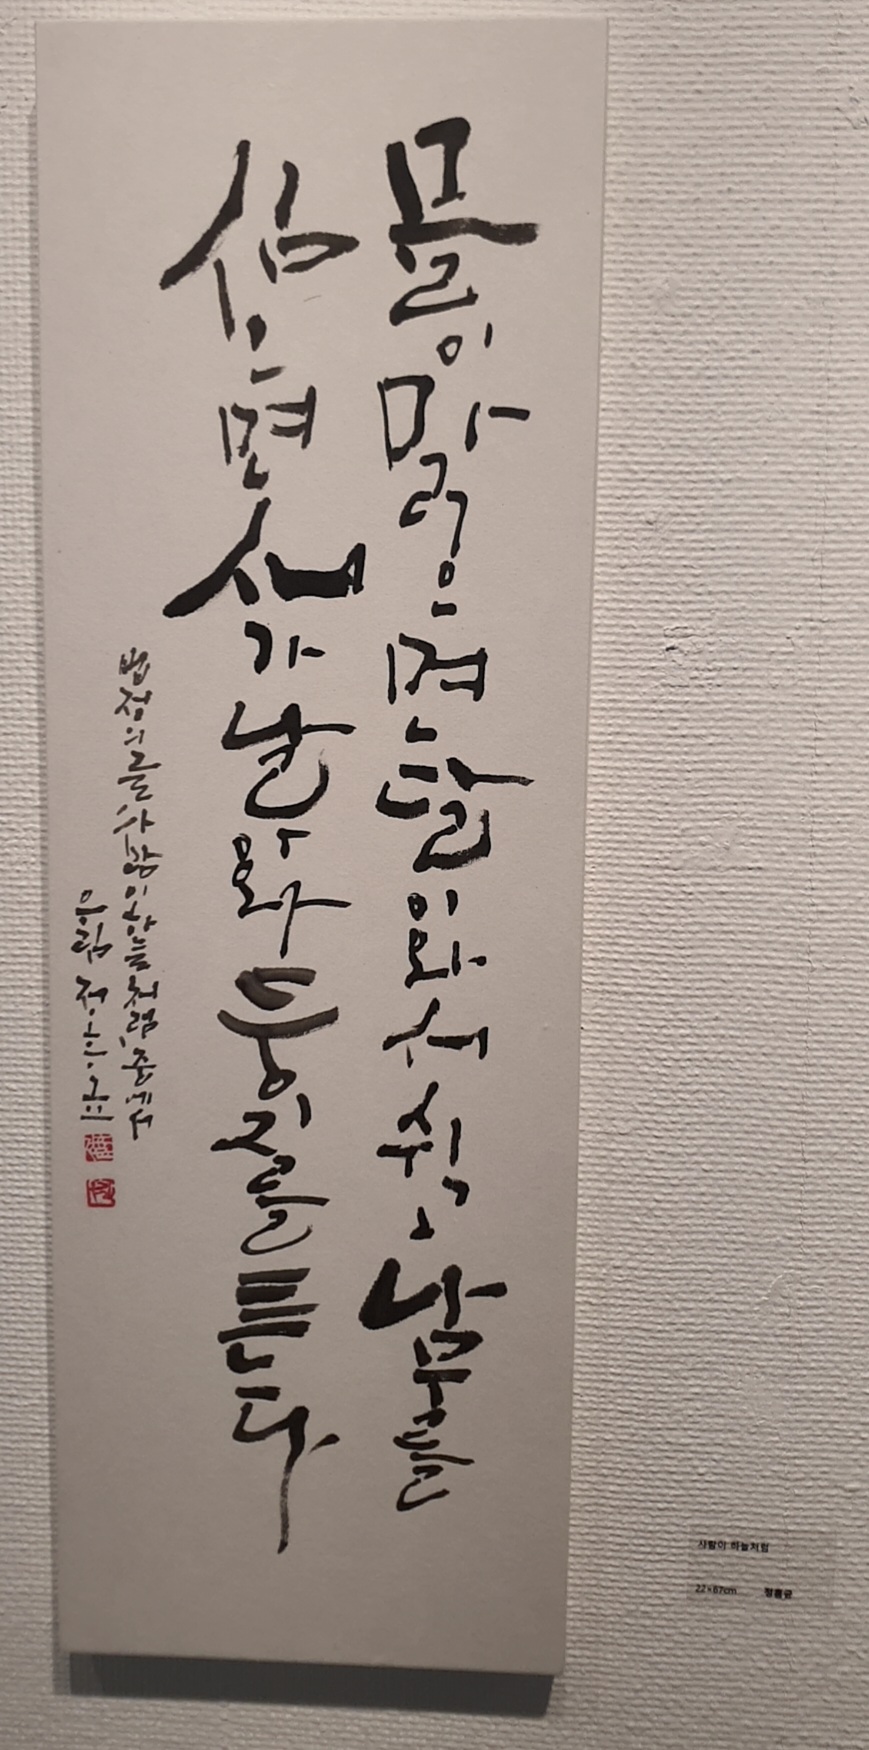 물이맑으면달이와서쉬고나무를
심으면새가날아와둥지를튼다
법정의글사람이하늘처럼중에서
정흥균
사람이 하늘처럼
22×87cm 정흥균